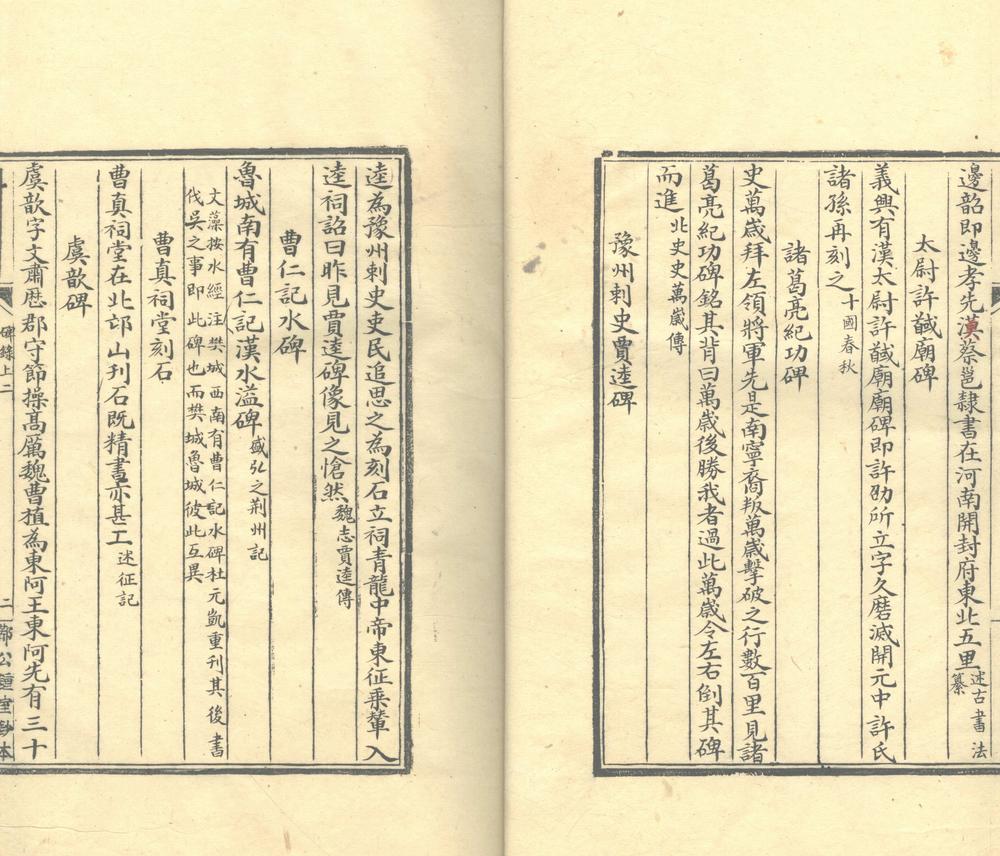 邊韶即邊孝先漢蔡邕隸書在河南開封府東北五里述古書法纂
太尉許馘廟碑
義興有漢太尉許馘廟廟碑即許劭所立字久磨滅開元中許氏
諸孫再刻之十國春秋
諸葛亮紀功碑
史萬歲拜左領將軍先是南寧裔叛萬歲擊破之行數百里見諸
葛亮紀功碑銘其背曰萬歲後勝我者過此萬歲令左右倒其碑
而進北史史萬歲傳
豫州刺史賈逵碑
逵為豫州刺史吏民追思之為刻石立祠青龍中帝東征乘輦入
逵祠詔曰昨見賈逵碑像見之愴然魏志賈逵傳
曹仁記水碑
魯城南有曹仁記漢水溢碑盛弘之荆州記
文藻按水經注樊城西南有曹仁記水碑杜元凱重刊其後書
伐吳之事即此碑也而樊城魯城彼此互異
曹真祠堂刻石
曹真祠堂在北邙山刋石既精書亦甚工述征記
虞歆碑
虞歆字文肅歷郡守節操高厲魏曹植為東阿王東阿先有三十
碑錄上 二
二 鄭公鍾室鈔本